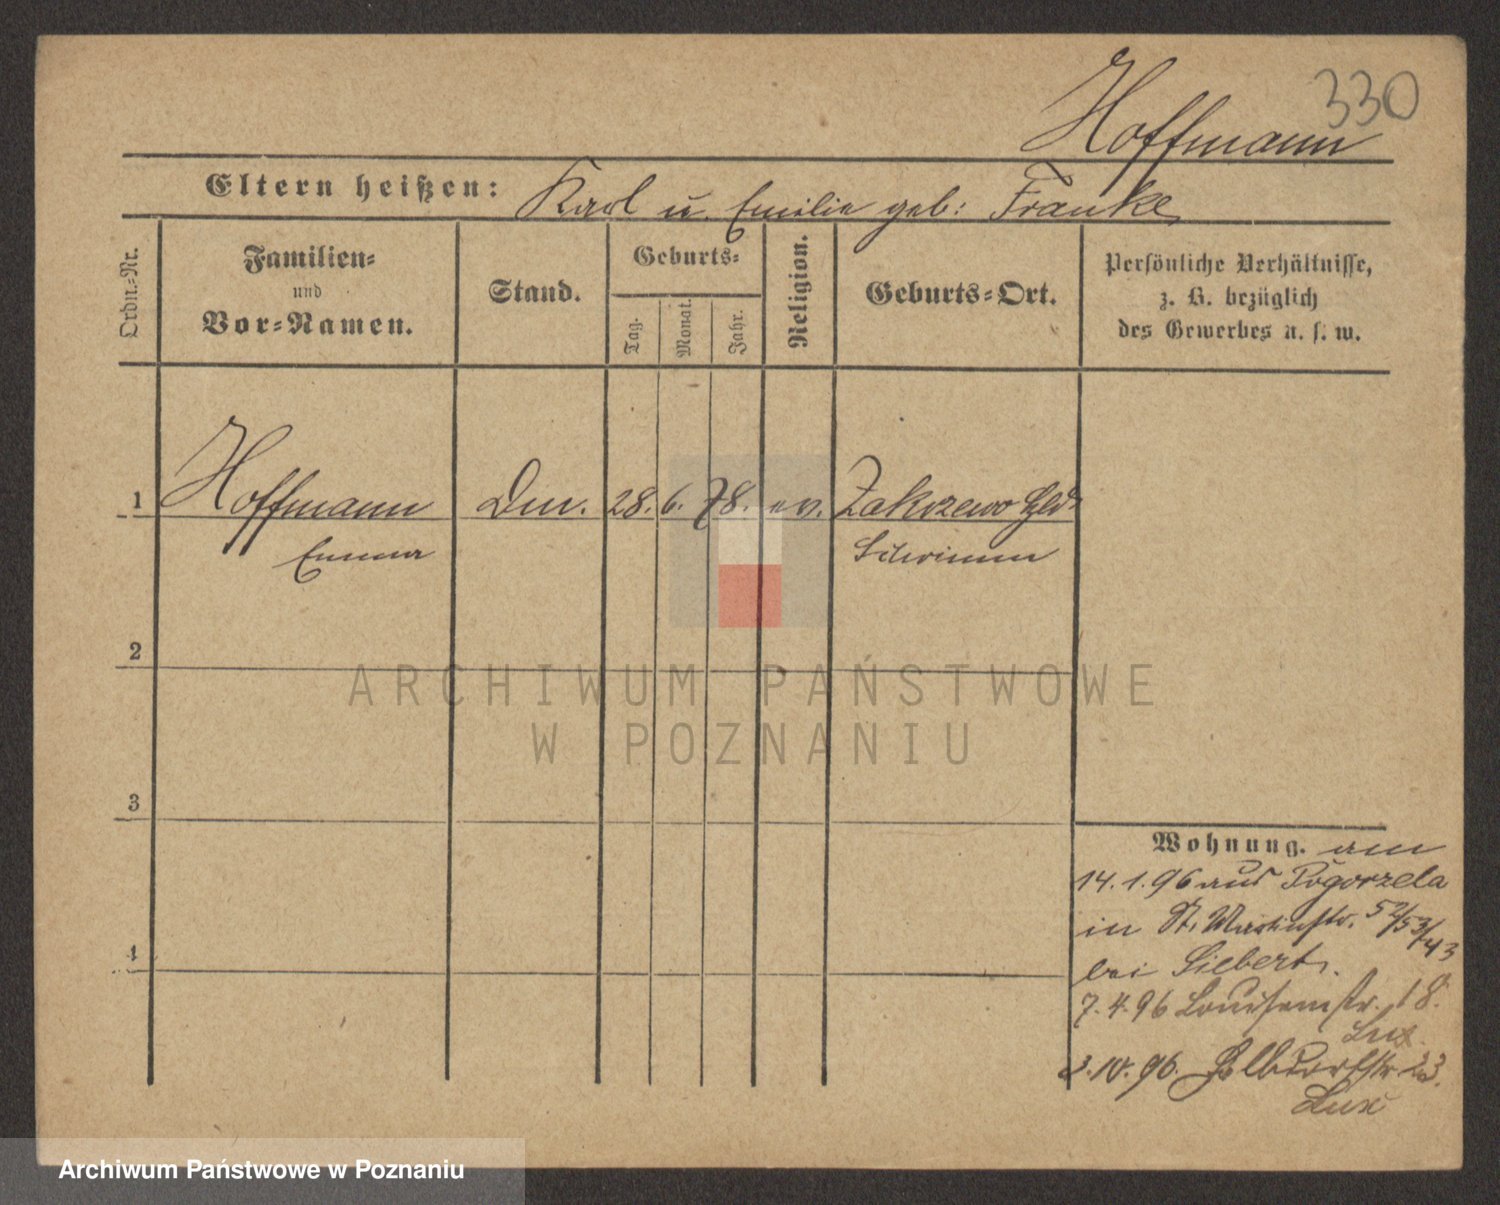 330
Hoffmann
Eltern heißen: Karl u. Emilie geb: Franke
Ordn.-Nr.
Familien-
und
Vor-Namen.
Stand.
Geburts-
Tag.
Monat.
Jahr.
Religion.
Geburts-Ort.
Persönliche Verhältnisse,
z. B. bezüglich
des Gewerbes u. s. w.
1 Hoffmann 28. 6. 78. ev. Zakrzewo
Emma Schrimm
2
3
4
Wohnung. am
14.1.96 aus Pogorzela
in St. Martinstr. 52/53/43
bei Siebert.
7.4.96 Louisenstr. 18.
Lux.
3.10.96. 23.
Lux
ARCHIWUM PAŃSTWOWE
W POZNANIU
Archiwum Państwowe w Poznaniu